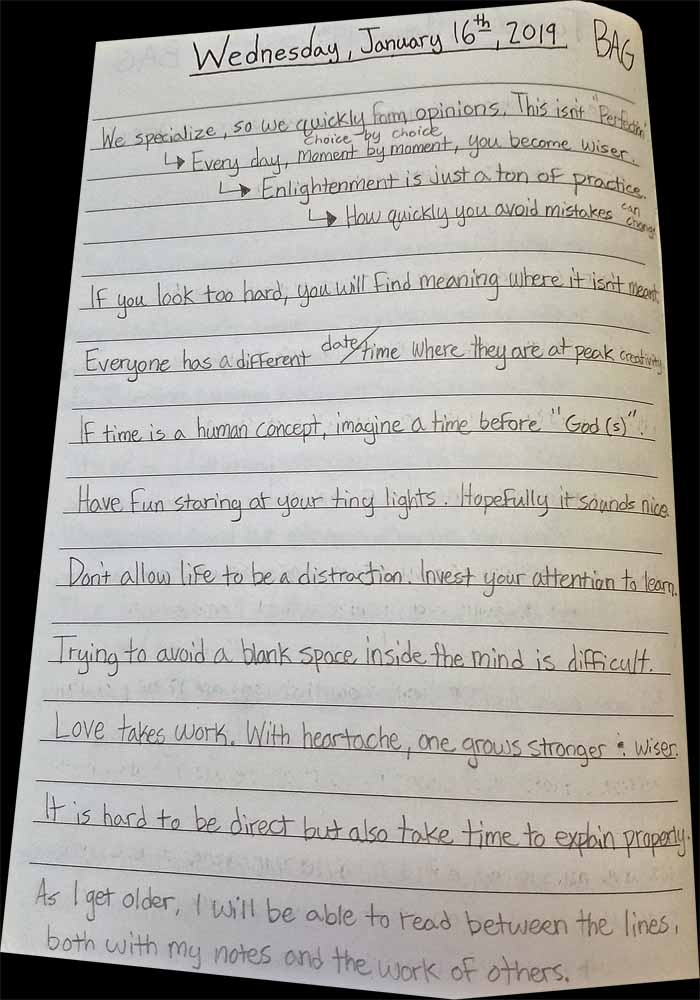 Wednesday, January 16th, 2019 BAG
We specialize, so we quickly form opinions. This isn't "Perfection"
choice by choice
↳ Every day, moment by moment, you become wiser.
↳ Enlightenment is just a ton of practice.
↳ How quickly you avoid mistakes can change
If you look too hard, you will find meaning where it isn't meant.
Everyone has a different date/time where they are at peak creativity.
If time is a human concept, imagine a time before "God(s)".
Have fun staring at your tiny lights. Hopefully it sounds nice.
Don't allow life to be a distraction. Invest your attention to learn.
Trying to avoid a blank space inside the mind is difficult.
Love takes work. With heartache, one grows stronger & wiser.
It is hard to be direct but also take time to explain properly.
As I get older, I will be able to read between the lines,
both with my notes and the work of others.